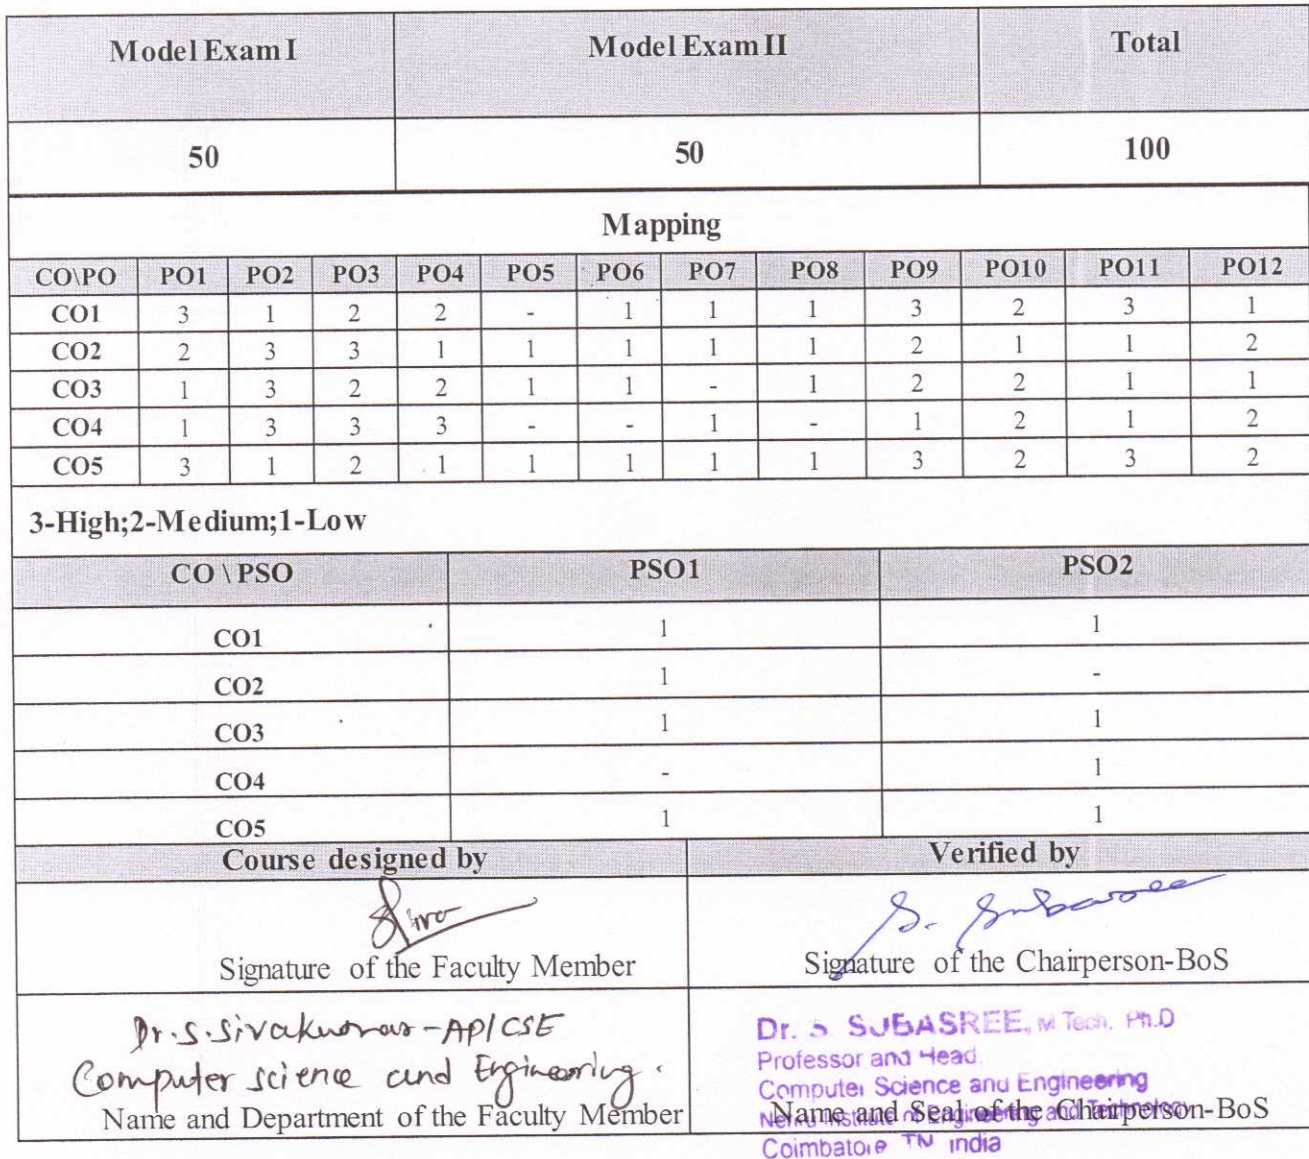 Model Exam I Model Exam II Total
50 50 100
Mapping
CO\PO PO1 PO2 PO3 PO4 PO5 PO6 PO7 PO8 PO9 PO10 PO11 PO12
CO1 3 1 2 2 - 1 1 1 3 2 3 1
CO2 2 3 3 1 1 1 1 1 2 1 1 2
CO3 1 3 2 2 1 1 - 1 2 2 1 1
CO4 1 3 3 3 - - 1 - 1 2 1 2
CO5 3 1 2 1 1 1 1 1 3 2 3 2
3-High;2-Medium;1-Low
CO \ PSO PSO1 PSO2
CO1 1 1
CO2 1 -
CO3 1 1
CO4 - 1
CO5 1 1
Course designed by Verified by
S. Subasree
Signature of the Faculty Member Signature of the Chairperson-BoS
Dr. S. Sivakumar - AP/CSE
Computer science and Engineering.
Name and Department of the Faculty Member
Dr. S. SUBASREE, M Tech. Ph.D
Professor and Head
Computer Science and Engineering
Name and Seal of the Chairperson-BoS
Institute of Engineering and Technology
Coimbatore TN India